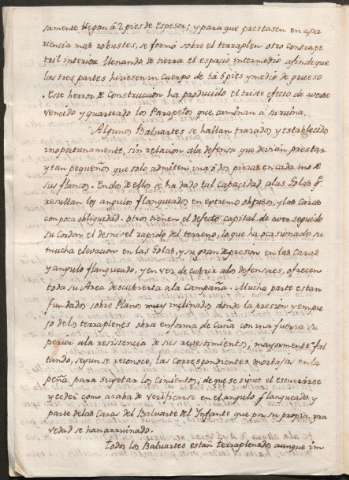 samente llegan á 2 pies de Espesor; y para que prestasen en apa
riencia mas robustes, se formó sobre el terraplen otro Contrape
tril interior llenando de tierra el espacio intermedio afin de que
las tres partes hiciesen un cuerpo de 5 á 6 pies y medio de grueso
Este herror de Construccion ha producido el triste efecto de averse
vencido y quarteado los Parapetos que aminan à su ruina.
Algunos Baluartes se hallan trazados y establecidos
inoportunamente, sin relacion ala defensa que devian prestar
y tan pequeños que solo admiten una ò dos piezas en cada uno de
sus flancos. En dos de ellos se ha dado tal Capacidad alas Golas q.
resultan los angulos flanqueados en extremo obtusos, y las Caras
con poca obliquedad. Otros tienen el defecto capital de aver seguido
su Cordon el desnivel rapido del terreno, lo que ha ocasionado su
mucha elevacion en las Golas, y su gran depresion en las Caras
y angulo flanqueado, y en vez de cubrir alos defensores, ofrecen
toda su Area descubierta ala Campaña. Mucha parte estan
fundados sobre Plano muy inclinado, donde la presion y empu
jo delos terraplenes obra en forma de Cuña con una fuerza su
perior ala resistencia de sus revestimientos, mayormente fal
tando, segun se reconoce, las correspondientes mortesas en la
peña para sujetar los Cimientos, de que se sigue el
y ceder como acaba de verificarse en el angulo flanqueado y
parte delas Caras del Baluarte del Infante que por su propria gra
vedad se han arruinado.
Todos los Baluartes estan terraplenados aunque im